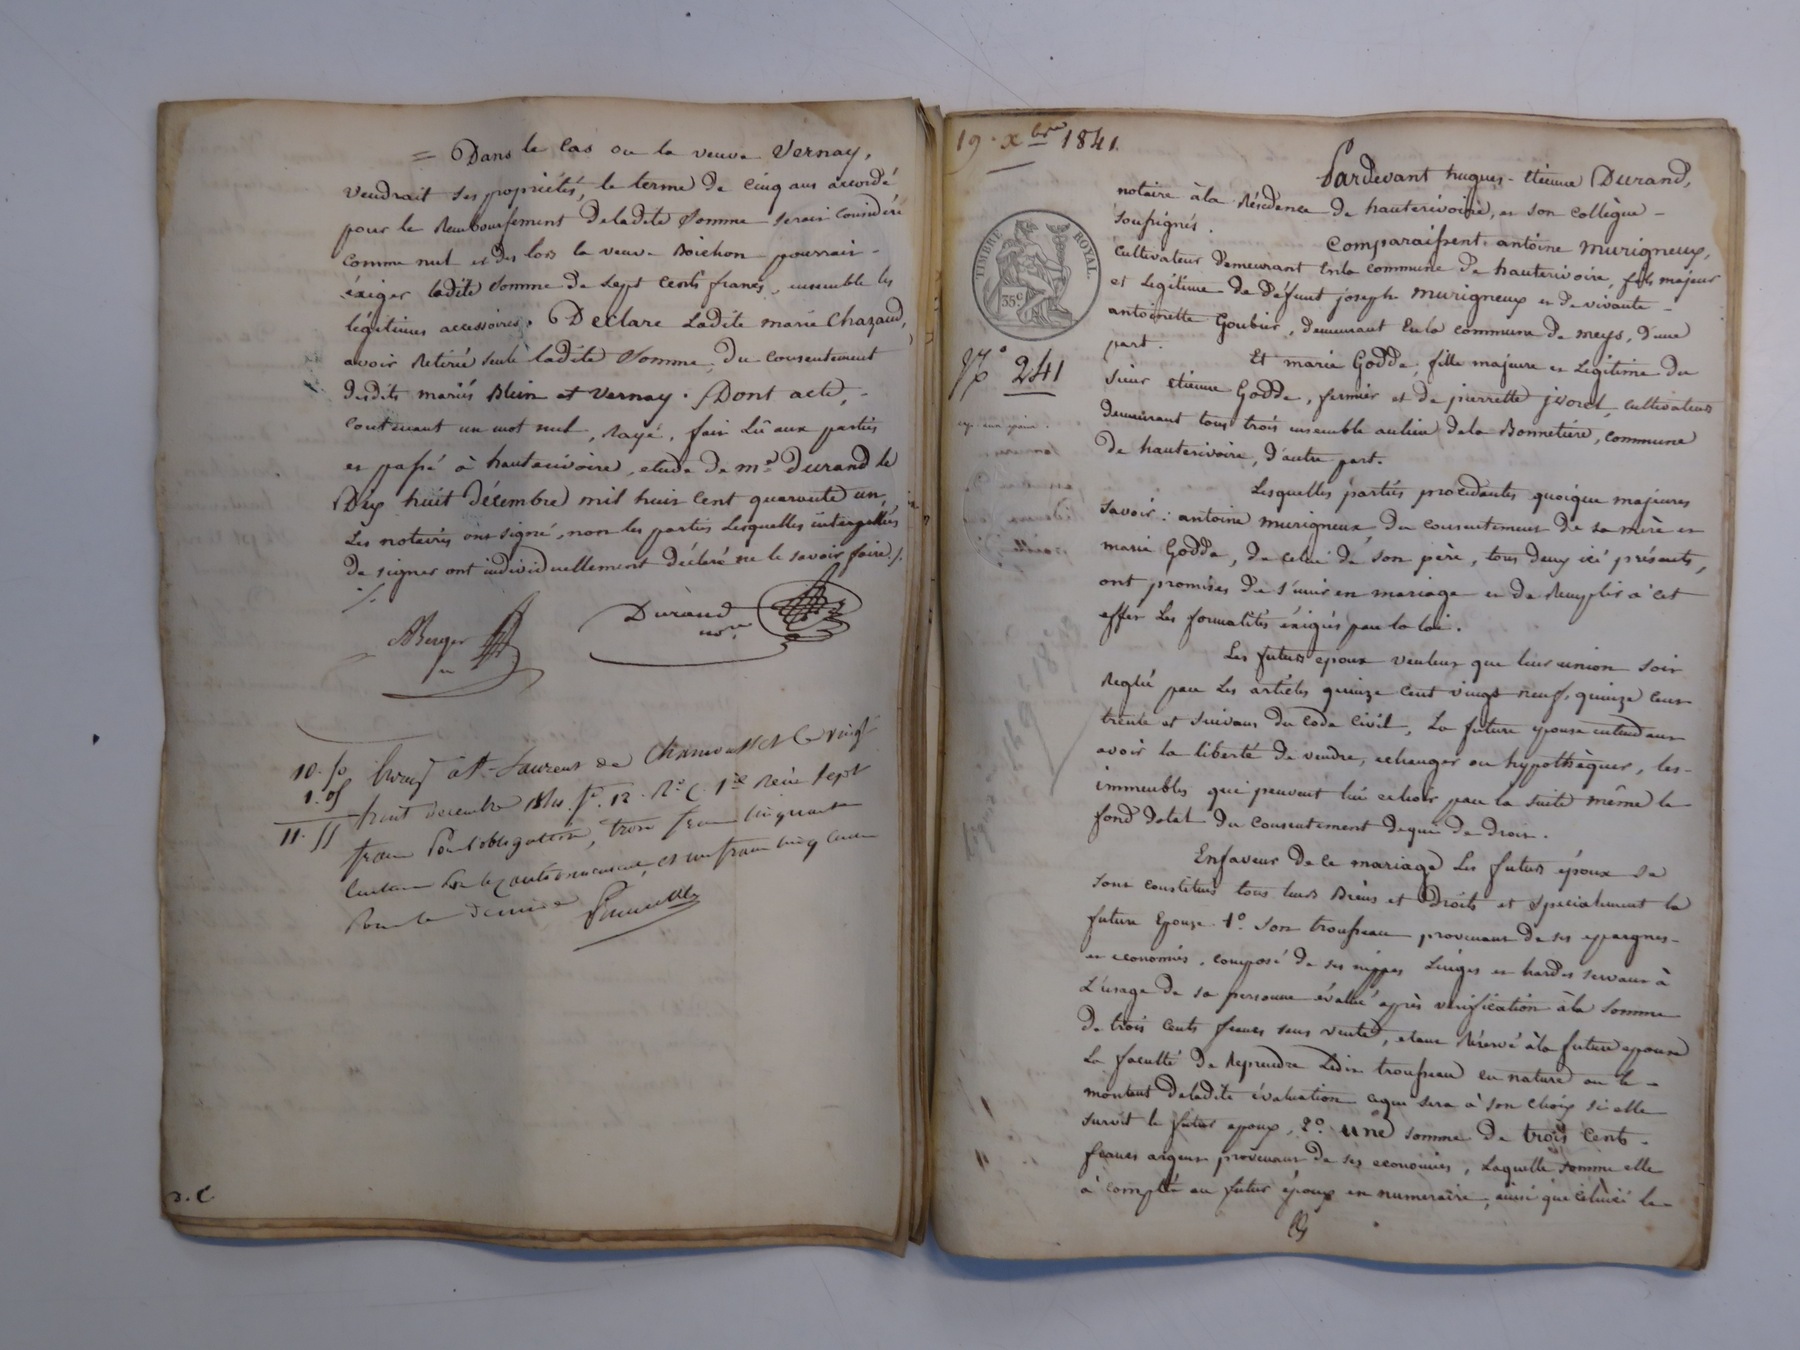 = Dans le cas ou la veuve Vernay,
vendrait ses propriétés, le terme de cinq ans accordé
pour le Remboursement deladite somme serait considéré
comme nul et des lors la veuve Boichon pourrait -
éxiger ladite somme de sept cents francs, ensemble les
légitimes accessoires. Déclare Ladite marie Chazaud,
avoir Retiré seule ladite somme, du consentement
desdits mariés Blein et Vernay. Dont acte, -
contenant un mot nul, rayé, fait Lu aux parties
et passé à hauterivoire, etude de me. Durand le
Dix huit décembre mil huit cent quarante un,
Les notaires ont signé, non les parties Lesquelles interpellées
de signer ont individuellement déclaré ne le savoir faire ./.
Berger
Durand
nore.
10. 50
1. 05
11. 55
Enregé à St. Laurent de Chamousset le vingt
huit decembre 1841 fo. 12 Ro. C. 1re Reçu sept
francs Pour l'obligation, trois francs cinquante
centimes Pour le cautionnement, et un franc cinq cent
Pour le decime
D. C
19. Xbre 1841.
TIMBRE ROYAL.
35c
No 241
Pardevant hugues-etienne Durand,
notaire à la Résidence de hauterivoire, et son collègue -
soussignés.
Comparaissent. antoine murigneux,
cultivateur demeurant enla commune de hauterivoire, fils majeur
et Legitime de défunt joseph murigneux et de vivante -
antoinette Goubier, demeurant en la commune de meys, d'une
part.
Et marie Godde, fille majeure et Légitime du
sieur etienne Godde, fermier et de pierrette jvorel, cultivateurs
demeurant tous trois ensemble aulieu dela Bonnetière, commune
de hauterivoire, d'autre part.
Lesquelles parties procédantes quoique majeures
savoir: antoine murigneux, du consentement de sa mère et
marie Godde, de celui de son père, tous deux ici présents,
ont promises de s'unir en mariage et de Remplir à cet
effet Les formalités éxigées par la loi.
Les futurs epoux veulent que leur union soit
Reglée par Les articles quinze cent vingt neuf, quinze cent
trente et suivans du code civil, La future epouse entendant
avoir la liberté de vendre, echanger ou hypothèquer, les -
immeubles qui peuvent lui echoir par la suite même le
fond dotal du consentement de qui de droit.
Enfaveur de ce mariage Les futurs époux se
sont constitués tous leurs Biens et Droits et specialement la
future Epouse. 1o. Son trousseau provenant de ses epargnes -
et economies, composé de ses nippes Linges et hardes servant à
L'usage de sa personne évalué après vérification à la somme
de trois cents francs sans vente, etant Réservé à la future epouse
La faculté de Reprendre Ledit trousseau en nature ou le -
montant deladite évaluation ce qui sera à son choix si elle
survit le futur epoux, 2o. une somme de trois cents -
francs argent provenant de ses economies, Laquelle somme elle
à compté au futur époux en numeraire, ainsi que celui ci le -